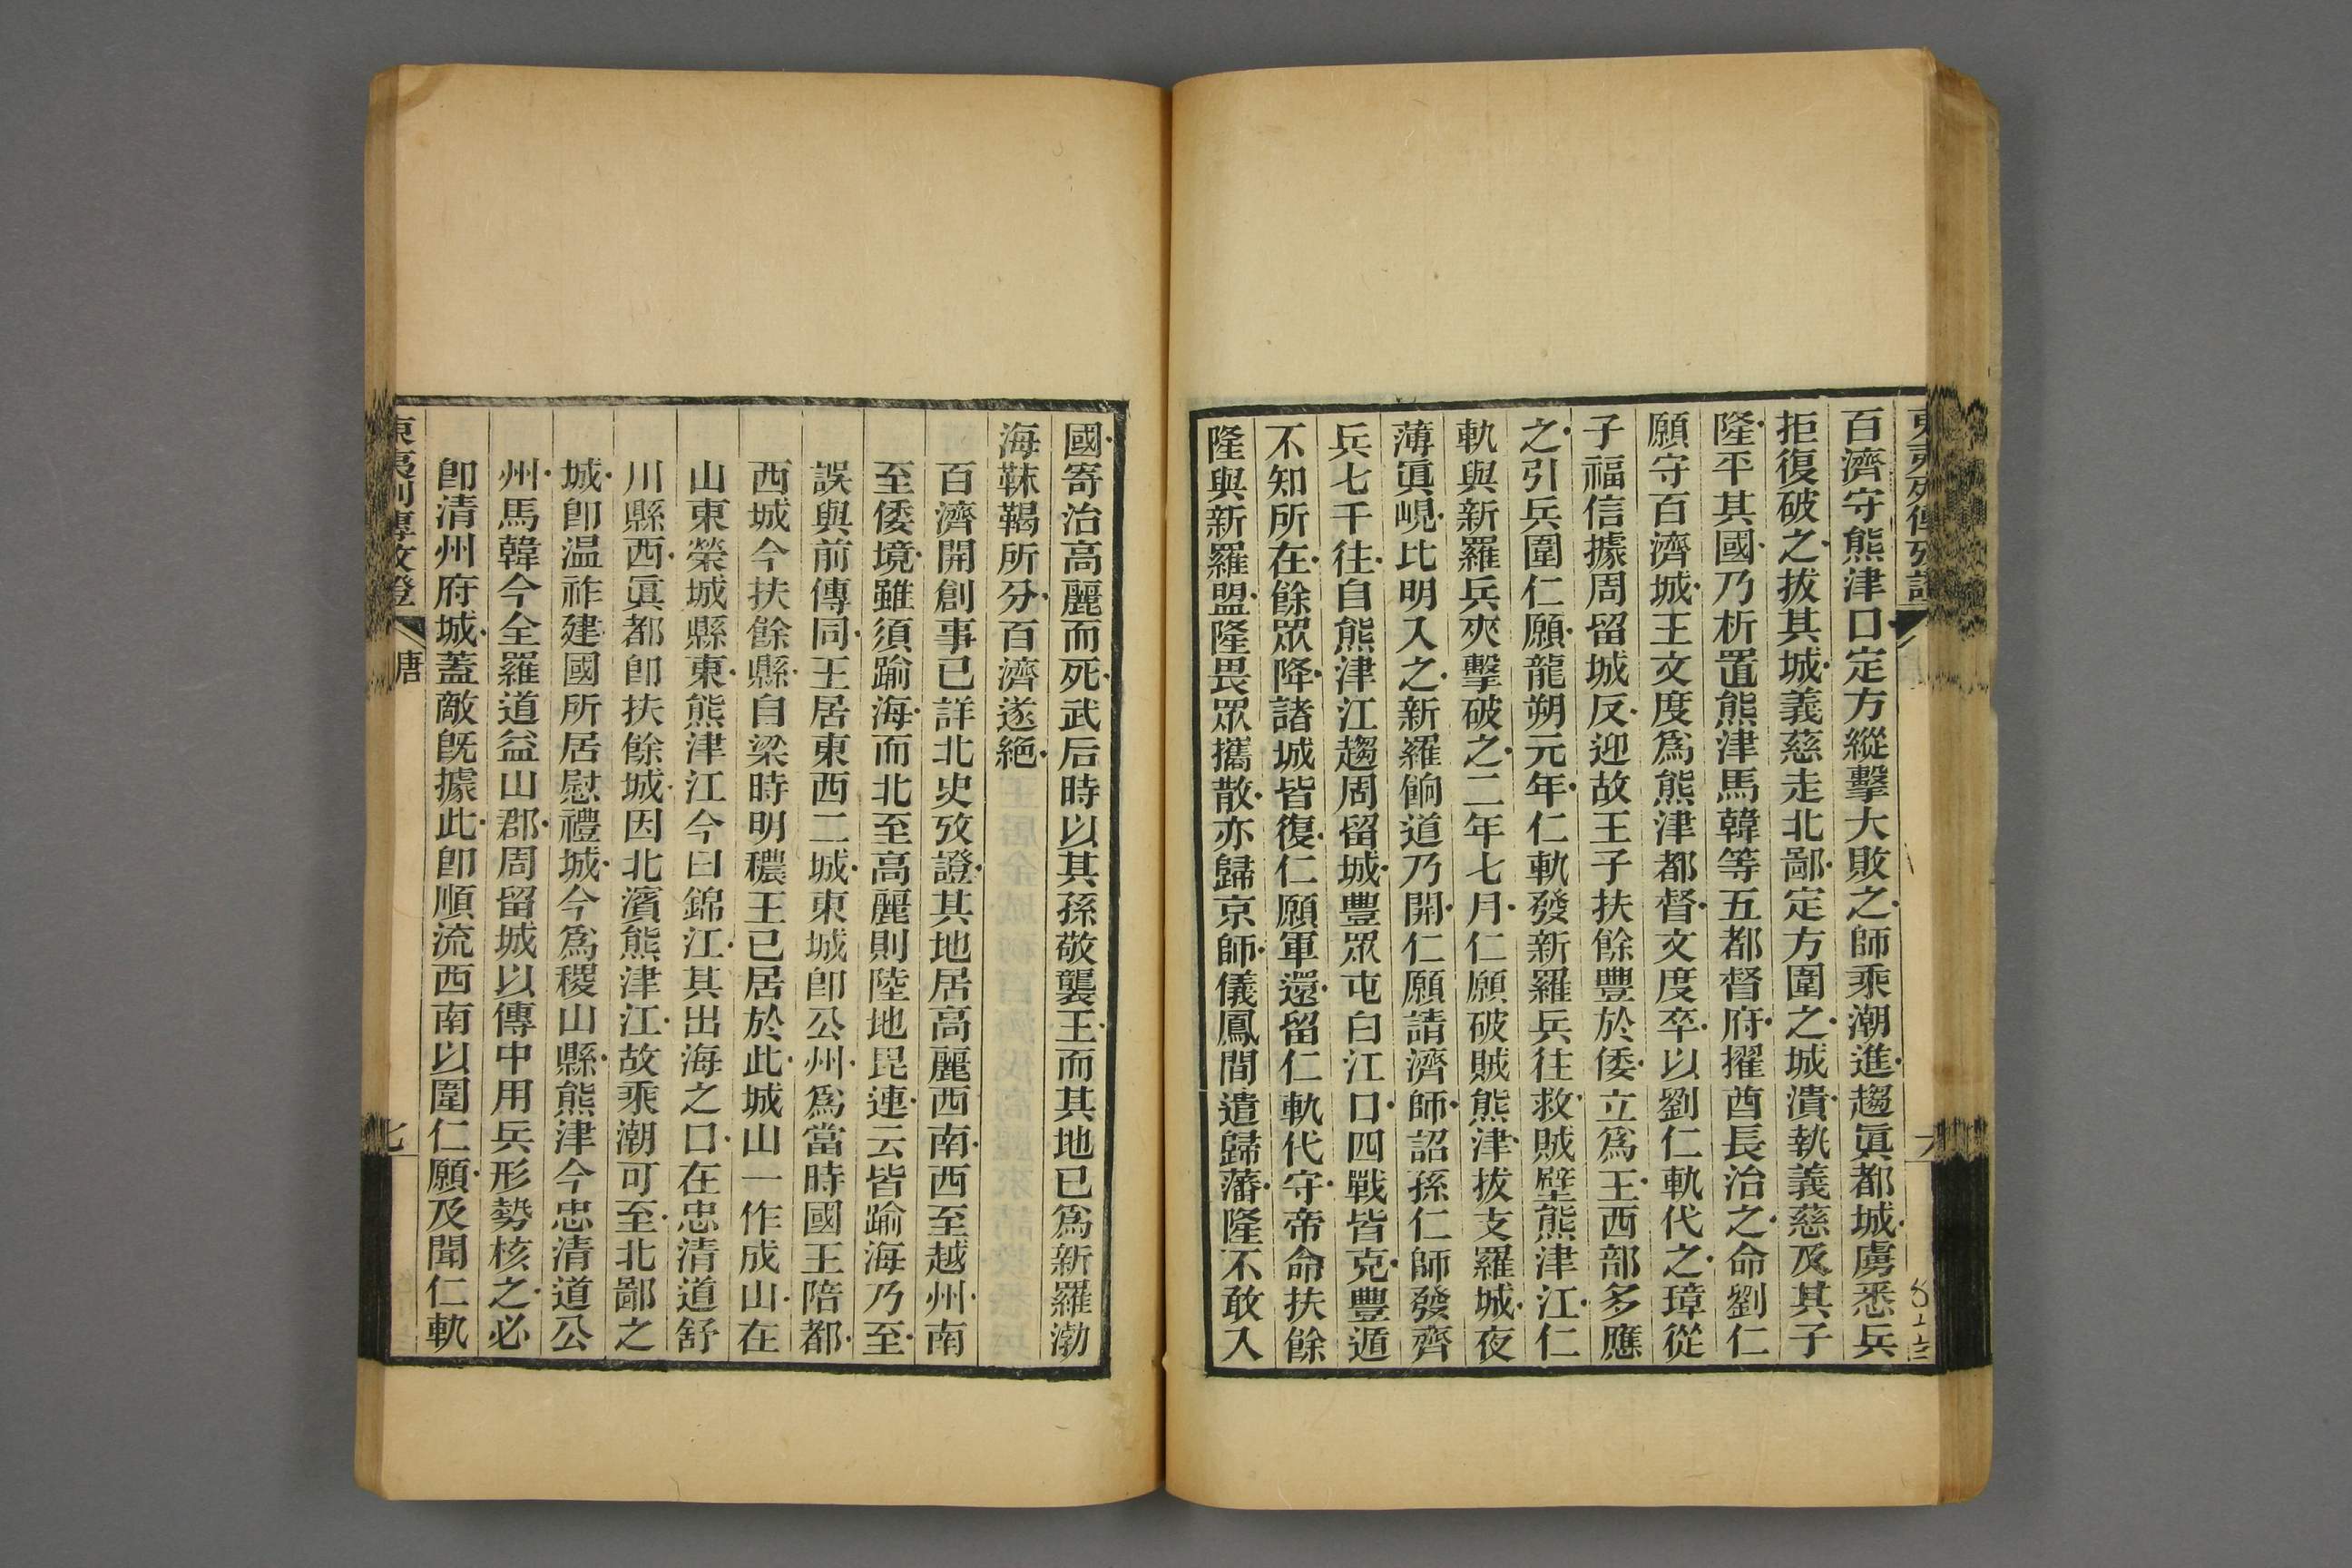 百濟守熊津口定方縱擊大敗之師乘潮進趨眞都城虜悉兵
拒復破之拔其城義慈走北鄙定方圍之城潰執義慈及其子
隆平其國乃析置熊津馬韓等五都督府擢酋長治之命劉仁
願守百濟城王文度爲熊津都督文度卒以劉仁軌代之璋從
子福信據周留城反迎故王子扶餘豐於倭立爲王西部多應
之引兵圍仁願龍朔元年仁軌發新羅兵往救賊壁熊津江仁
軌與新羅兵夾擊破之二年七月仁願破賊熊津拔支羅城夜
薄眞峴比明入之新羅餉道乃開仁願請濟師詔孫仁師發齊
兵七千往自熊津江趨周留城豐眾屯白江口四戰皆克豐遁
不知所在餘眾降諸城皆復仁願軍還留仁軌代守帝命扶餘
隆與新羅盟隆畏眾攜散亦歸京師儀鳳間遣歸藩隆不敢入
國寄治高麗而死武后時以其孫敬襲王而其地已爲新羅渤
海靺鞨所分百濟遂絕
百濟開創事已詳北史攷證其地居高麗西南西至越州南
至倭境雖須踰海而北至高麗則陸地毘連云皆踰海乃至
誤與前傳同王居東西二城東城卽公州爲當時國王陪都
西城今扶餘縣自梁時明穠王已居於此城山一作成山在
山東榮城縣東熊津江今曰錦江其出海之口在忠清道舒
川縣西眞都卽扶餘城因北濱熊津江故乘潮可至北鄙之
城卽温祚建國所居慰禮城今爲稷山縣熊津今忠清道公
州馬韓今全羅道益山郡周留城以傳中用兵形勢核之必
卽清州府城蓋敵旣據此卽順流西南以圍仁願及聞仁軌
東夷列傳攷證
唐
七